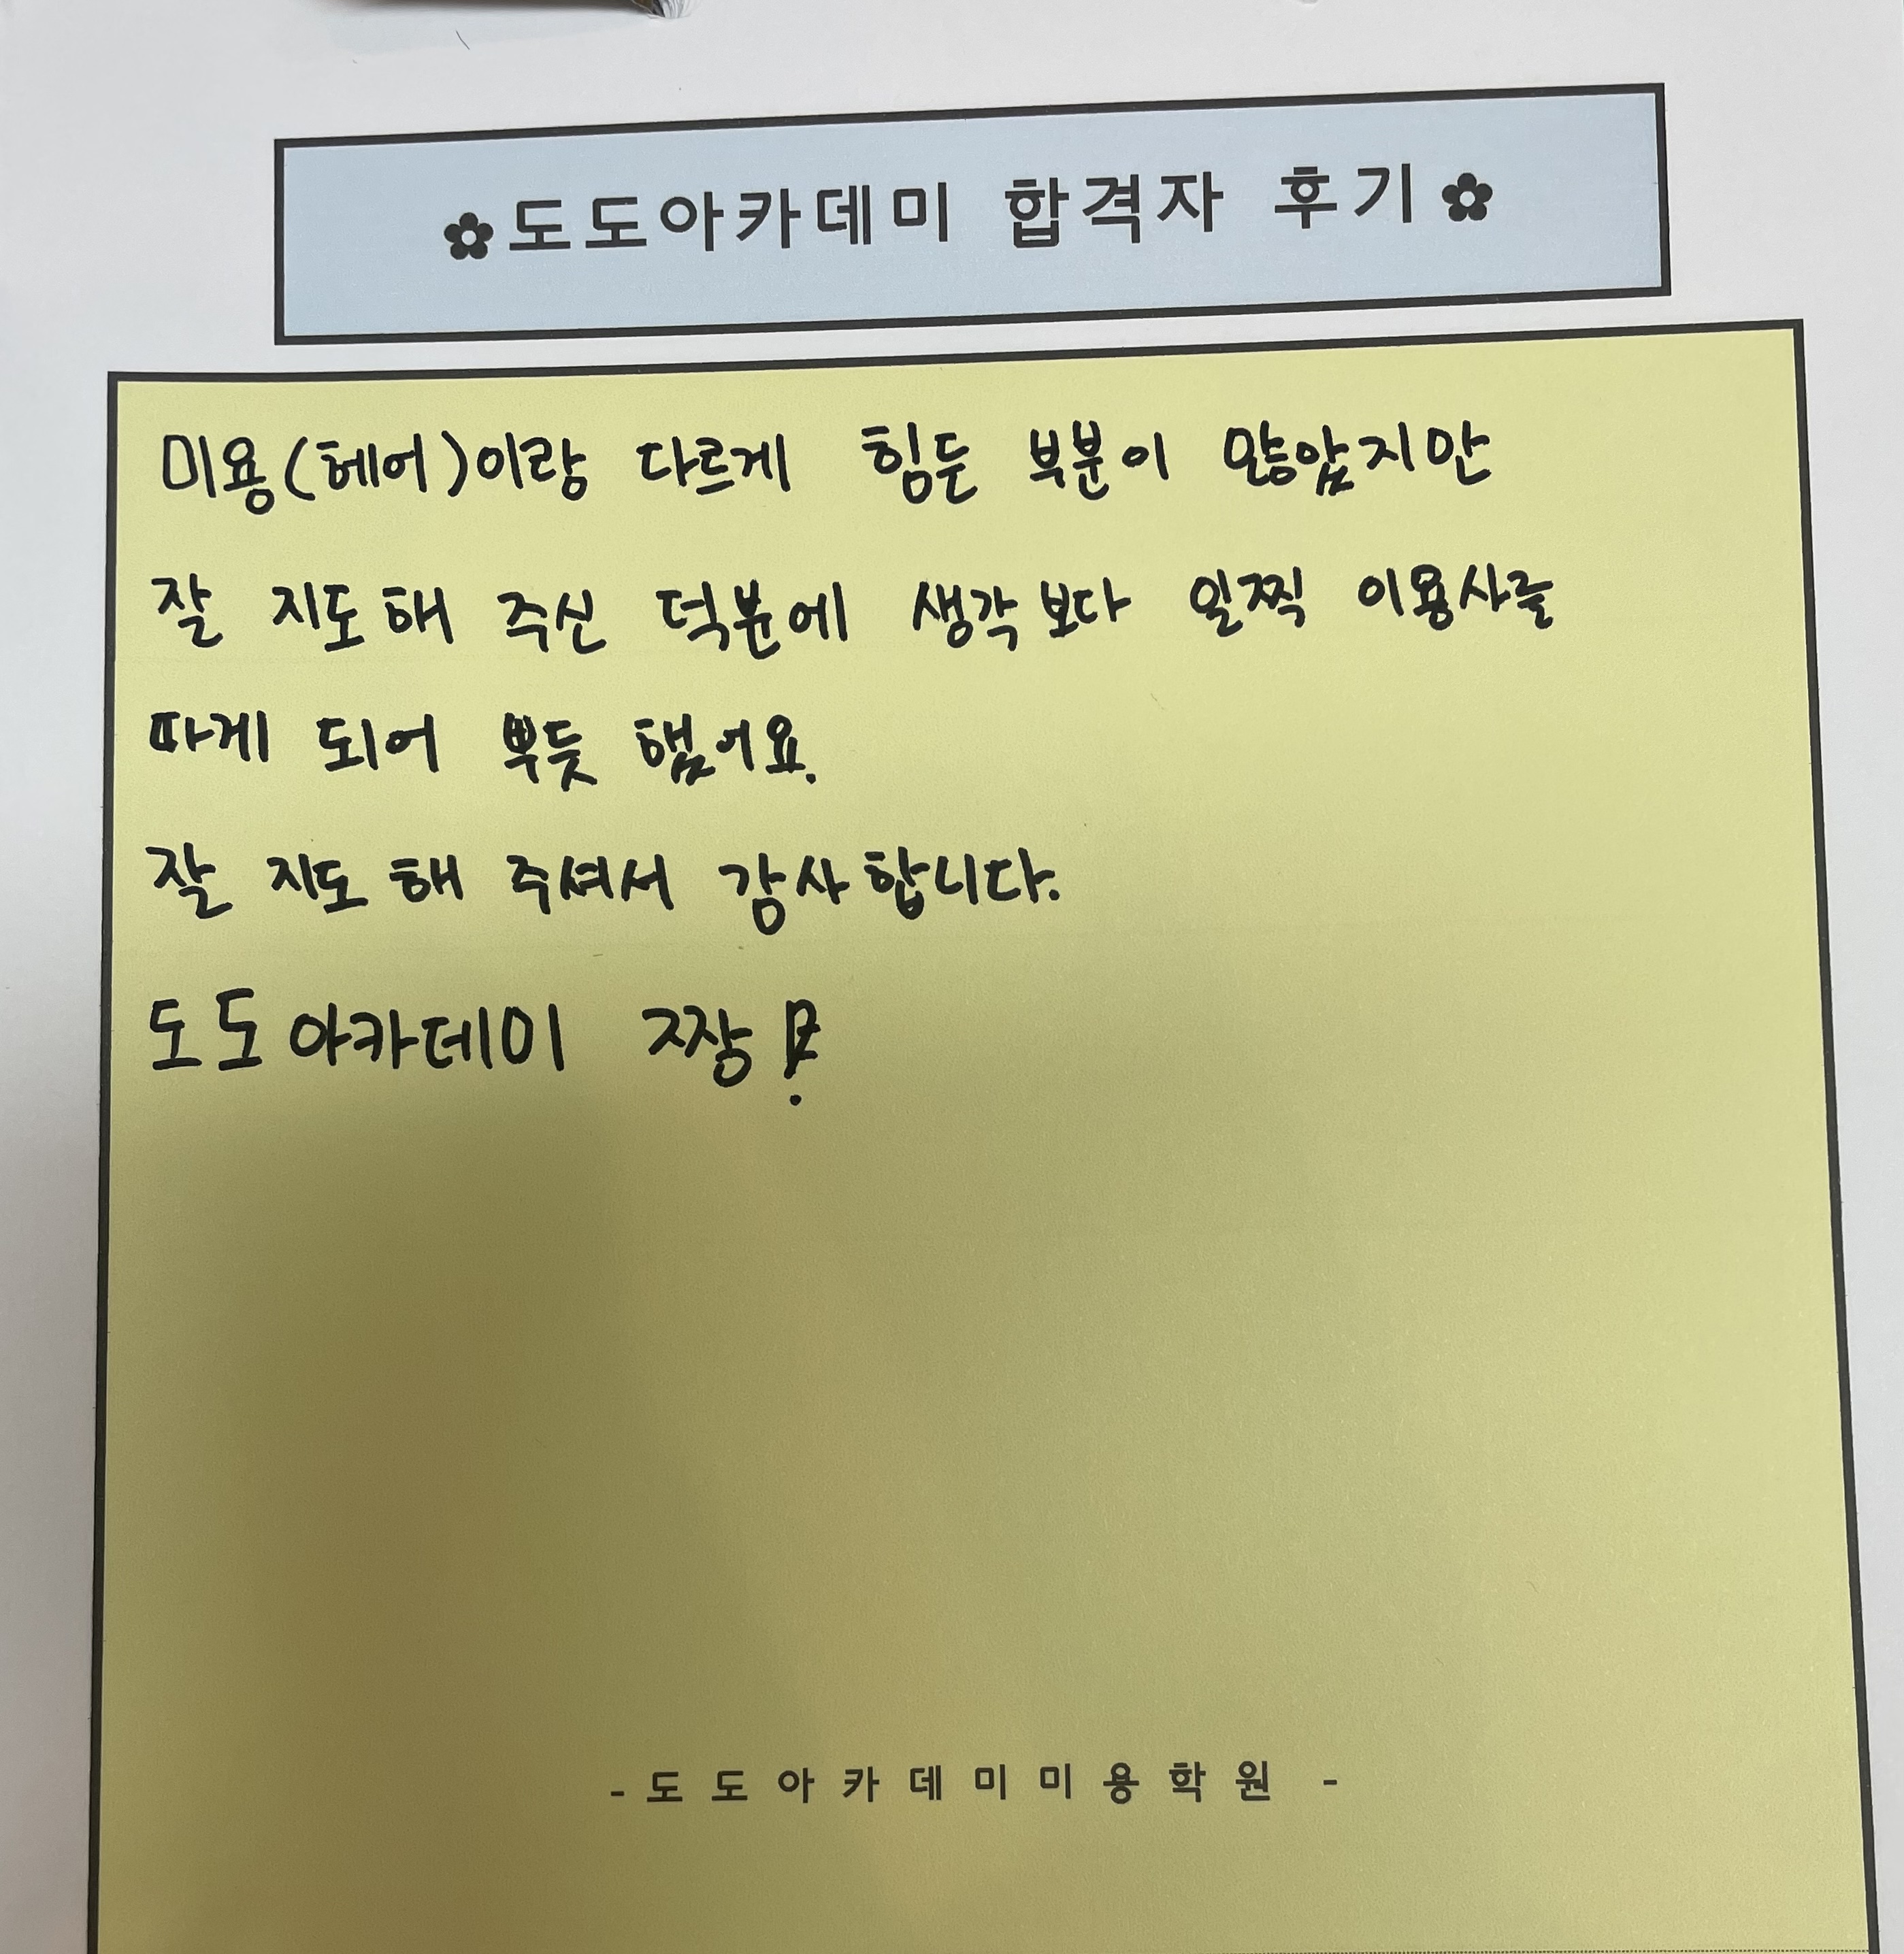 ✿도도아카데미 합격자 후기✿
미용(헤어)이랑 다르게 힘든 부분이 많았지만
잘 지도해 주신 덕분에 생각보다 일찍 이용사를
따게 되어 뿌듯 했어요.
잘 지도 해 주셔서 감사합니다.
도도아카데미 짱!
- 도 도 아 카 데 미 미 용 학 원 -